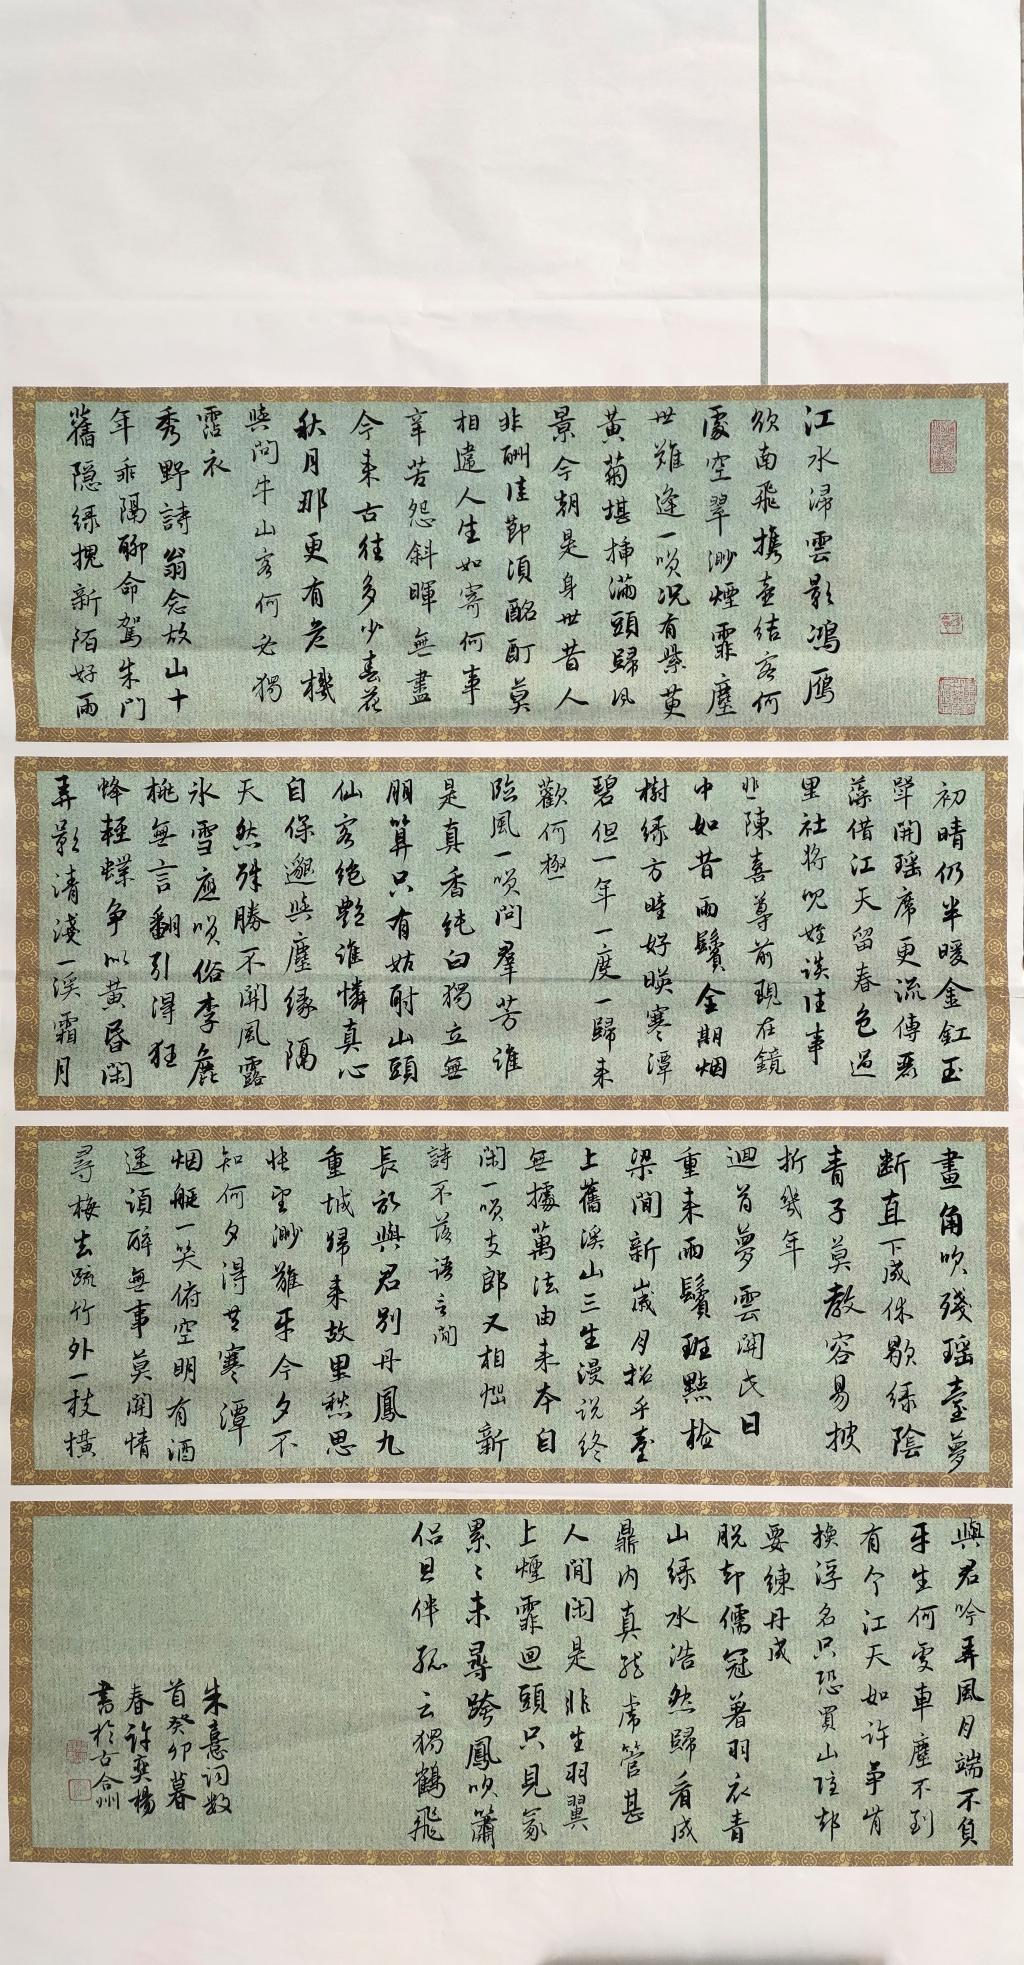 江水浸雲影鴻雁
欲南飛攜壺結客何
處空翠渺煙霏塵
世難逢一笑況有紫萸
黃菊堪插滿頭歸風
景今朝是身世昔人
非酬佳節須酩酊莫
相違人生如寄何事
辛苦怨斜暉無盡
今來古往多少春花
秋月那更有危機
與問牛山客何必獨
霑衣
秀野詩翁念故山十
年乖隔聊命駕朱門
舊隱綠槐新陌好雨
初晴仍半暖金釭玉
斝開瑤席更流傳麗
藻借江天留春色過
里社將兒姪談往事
悲陳喜尊前現在鏡
中如昔兩鬢全期烟
樹綠方瞳好暎寒潭
碧但一年一度一歸来
歡何極
臨風一笑問羣芳誰
是真香純白獨立無
朋算只有姑射山頭
仙客絕艷誰憐真心
自保邈與塵緣隔
天然殊勝不關風露
冰雪應笑俗李麁
桃無言翻引得狂
蜂輕蝶争似黃昏閑
弄影清淺一溪霜月
畫角吹殘瑶臺夢
断直下成休歇綠陰
青子莫教容易披
折幾年
迴首夢雲關此日
重来兩鬢斑點檢
梁間新歲月招手臺
上舊溪山三生漫説終
無據萬法由来本自
閑一笑支郎又相惱新
詩不落語言間
長記與君別丹鳳九
重城歸来故里愁思
悵望渺難平今夕不
知何夕得共寒潭
烟艇一笑俯空明有酒
逕須醉無事莫關情
尋梅去疏竹外一枝横
與君吟弄風月端不負
平生何處車塵不到
有个江天如許爭肯
換浮名只恐買山隱却
要練丹成
脱却儒冠著羽衣青
山綠水浩然歸看成
鼎内真龍虎管甚
人間閑是非生羽翼
上煙霏回頭只見冢
累〻未尋跨鳳吹簫
侶且伴孤雲獨鶴飛
朱憙詞數
首癸卯暮
春許奕楊
書於古合州